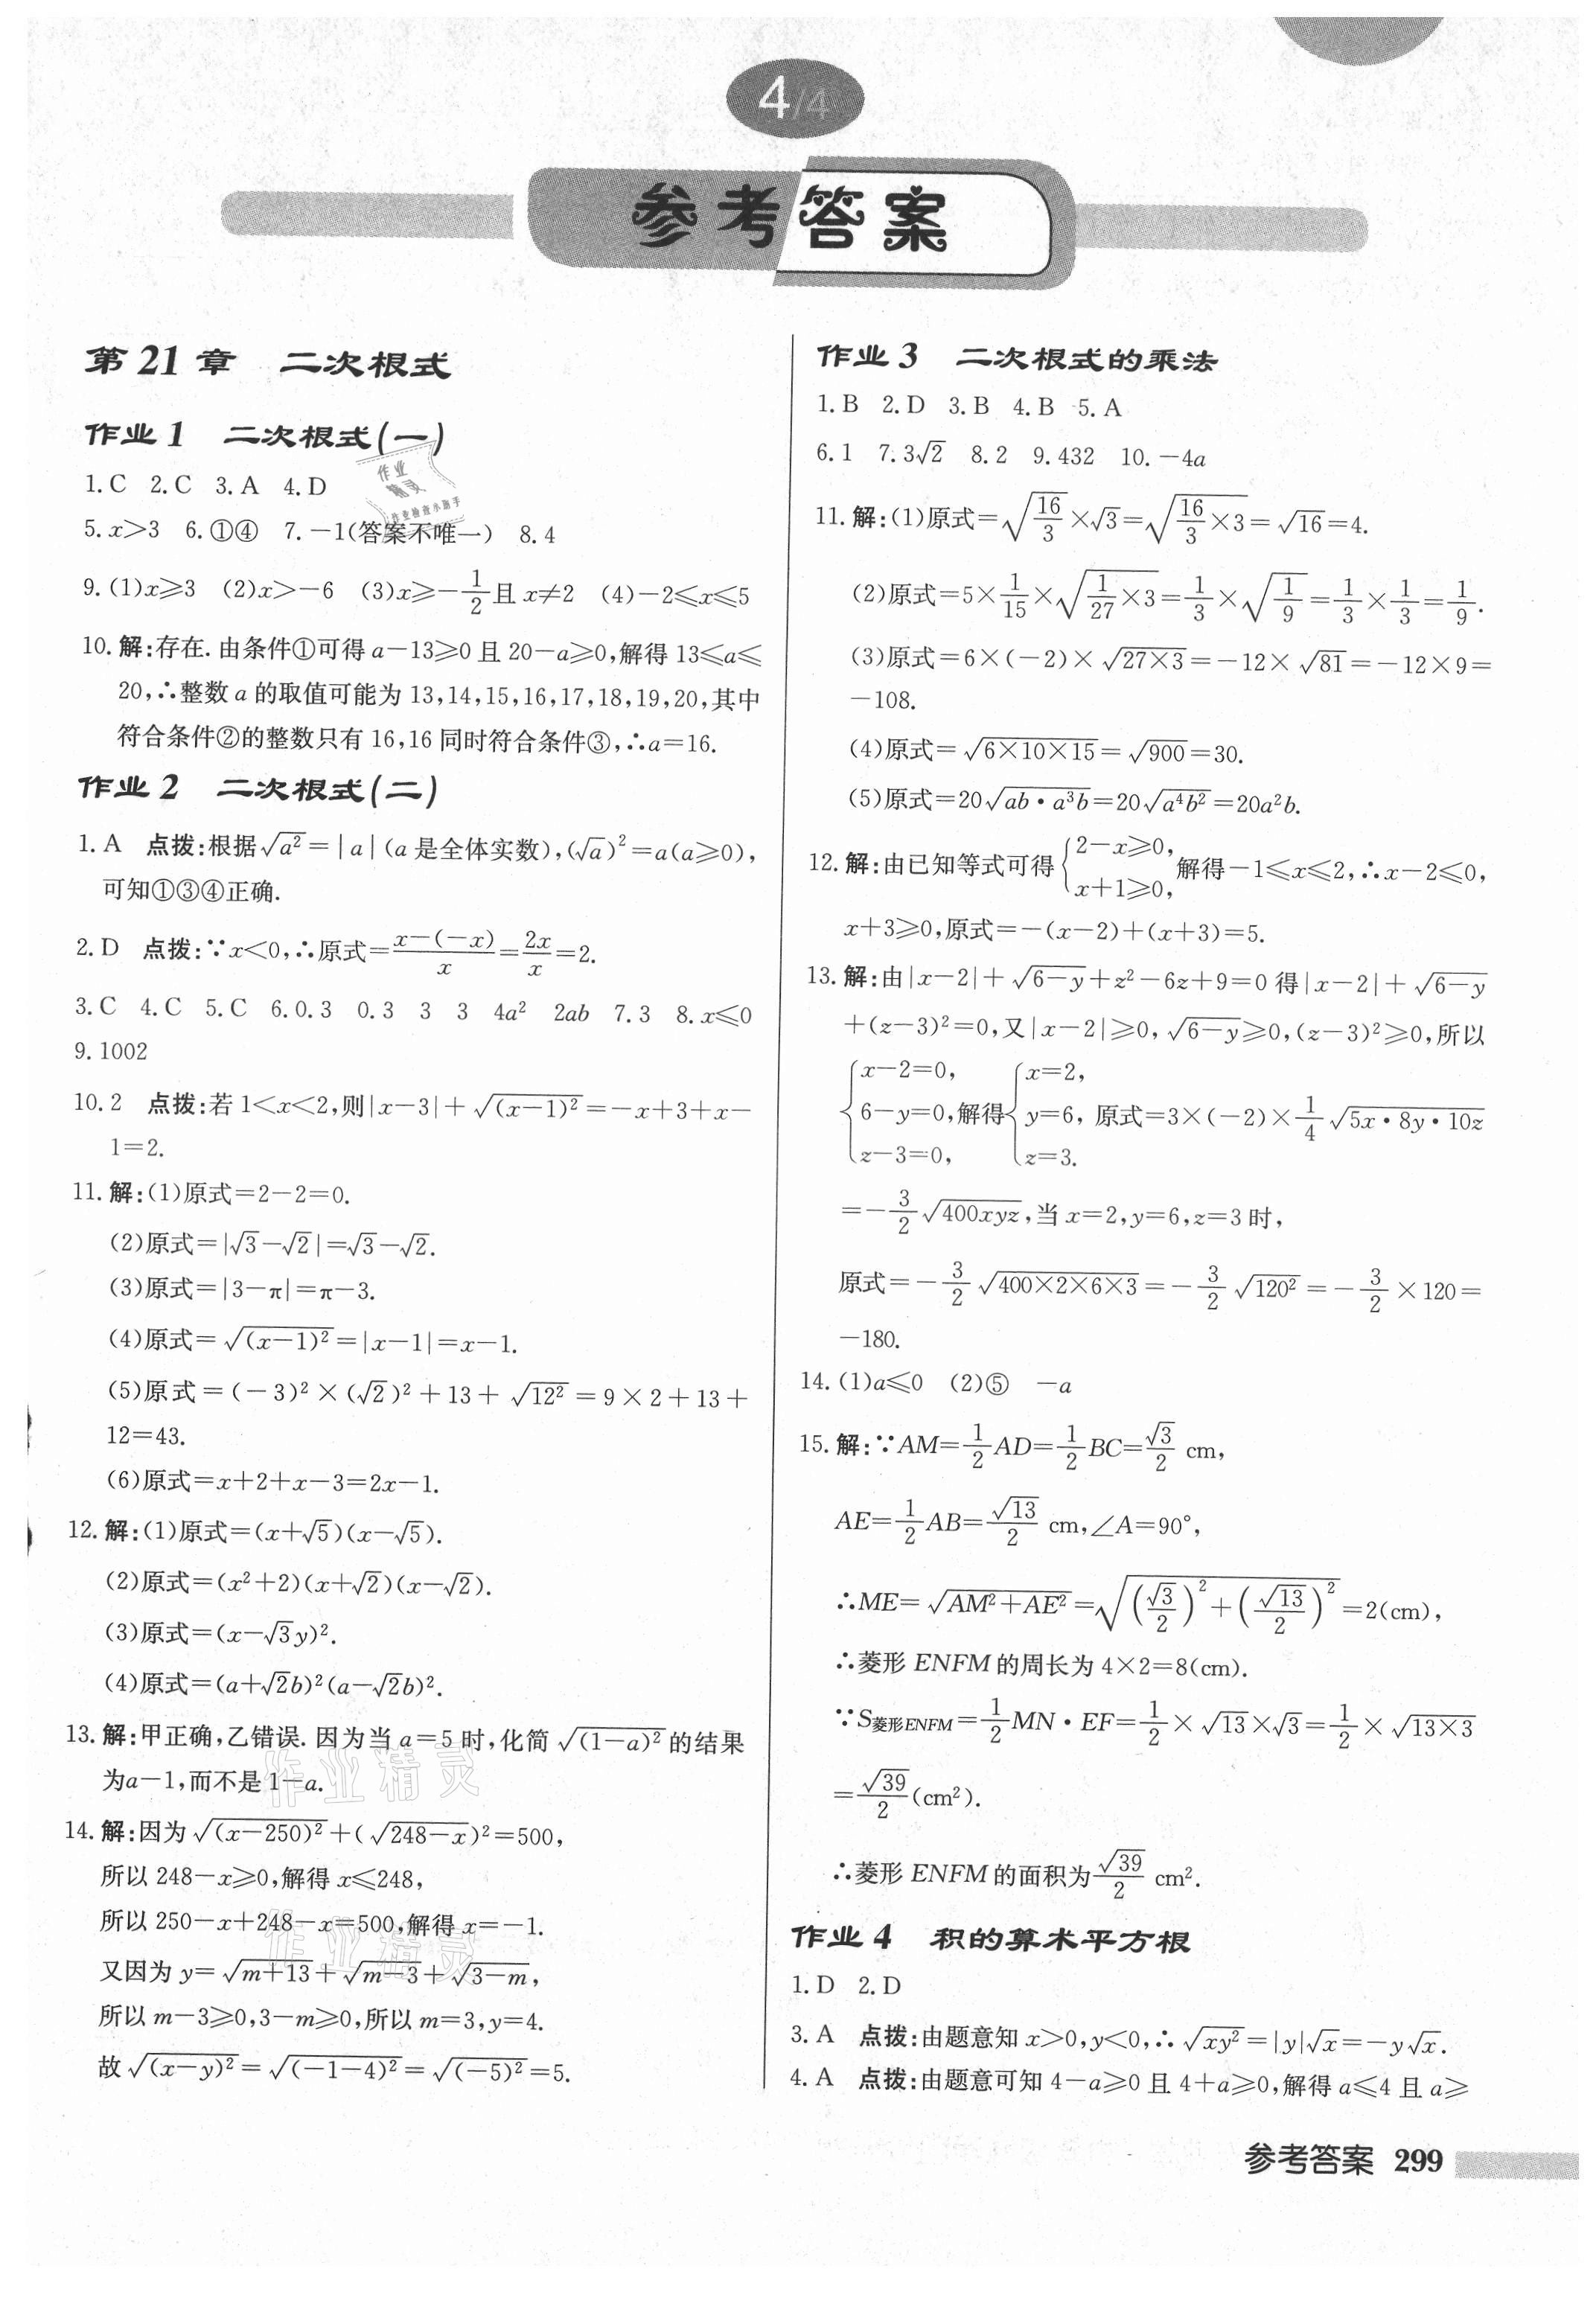 4/4
参考答案
第 21 章 二次根式
作业 1 二次根式(一)
1.C 2.C 3.A 4.D
5.x>3 6.①④ 7.-1(答案不唯一) 8.4
9.(1)x≥3 (2)x>-6 (3)x≥-1/2且 x≠2 (4)-2≤x≤5
10.解:存在.由条件①可得 a-13≥0 且 20-a≥0,解得 13≤a≤
20,∴整数 a 的取值可能为 13,14,15,16,17,18,19,20,其中
符合条件②的整数只有 16,16 同时符合条件③,∴a=16.
作业 2 二次根式(二)
1.A 点拨:根据√(a²)=|a|(a 是全体实数),(√a)²=a(a≥0),
可知①③④正确.
2.D 点拨:∵x<0,∴原式=(x-(-x))/x=2x/x=2.
3.C 4.C 5.C 6.0.3 0.3 3 3 4a² 2ab 7.3 8.x≤0
9.1002
10.2 点拨:若 1<x<2,则|x-3|+√((x-1)²)=-x+3+x-
1=2.
11.解:(1)原式=2-2=0.
(2)原式=|√3-√2|=√3-√2.
(3)原式=|3-π|=π-3.
(4)原式=√((x-1)²)=|x-1|=x-1.
(5)原式=(-3)²×(√2)²+13+√(12²)=9×2+13+
12=43.
(6)原式=x+2+x-3=2x-1.
12.解:(1)原式=(x+√5)(x-√5).
(2)原式=(x²+2)(x+√2)(x-√2).
(3)原式=(x-√3y)².
(4)原式=(a+√2b)²(a-√2b)².
13.解:甲正确,乙错误.因为当 a=5 时,化简√((1-a)²)的结果
为a-1,而不是 1-a.
14.解:因为√((x-250)²)+(√(248-x))²=500,
所以 248-x≥0,解得 x≤248,
所以 250-x+248-x=500,解得 x=-1.
又因为 y=√(m+13)+√(m-3)+√(3-m),
所以 m-3≥0,3-m≥0,所以 m=3,y=4.
故√((x-y)²)=√((-1-4)²)=√((-5)²)=5.
作业 3 二次根式的乘法
1.B 2.D 3.B 4.B 5.A
6.1 7.3√2 8.2 9.432 10.-4a
11.解:(1)原式=√(16/3)×√3=√(16/3×3)=√16=4.
(2)原式=5×1/15×√(1/27×3)=1/3×√(1/9)=1/3×1/3=1/9.
(3)原式=6×(-2)×√(27×3)=-12×√81=-12×9=
-108.
(4)原式=√(6×10×15)=√900=30.
(5)原式=20√(ab·a³b)=20√(a⁴b²)=20a²b.
12.解:由已知等式可得{2-x≥0, x+1≥0,解得-1≤x≤2,∴x-2≤0,
x+3≥0,原式=-(x-2)+(x+3)=5.
13.解:由|x-2|+√(6-y)+z²-6z+9=0 得|x-2|+√(6-y)
+(z-3)²=0,又|x-2|≥0,√(6-y)≥0,(z-3)²≥0,所以
{x-2=0, 6-y=0, z-3=0,解得{x=2, y=6, z=3. 原式=3×(-2)×1/4√(5x·8y·10z)
=-3/2√(400xyz),当 x=2,y=6,z=3 时,
原式=-3/2√(400×2×6×3)=-3/2√(120²)=-3/2×120=
-180.
14.(1)a≤0 (2)⑤ -a
15.解:∵AM=1/2AD=1/2BC=√3/2 cm,
AE=1/2AB=√13/2 cm,∠A=90°,
∴ME=√(AM²+AE²)=√((√3/2)²+(√13/2)²)=2(cm),
∴菱形 ENFM 的周长为 4×2=8(cm).
∵S菱形ENFM=1/2MN·EF=1/2×√13×√3=1/2×√(13×3)
=√39/2(cm²).
∴菱形 ENFM 的面积为√39/2 cm².
作业 4 积的算术平方根
1.D 2.D
3.A 点拨:由题意知 x>0,y<0,∴√(xy²)=|y|√x=-y√x.
4.A 点拨:由题意可知 4-a≥0 且 4+a≥0,解得 a≤4 且 a≥
参考答案 299
作业精灵
作业检查小助手
作业精灵
作业精灵